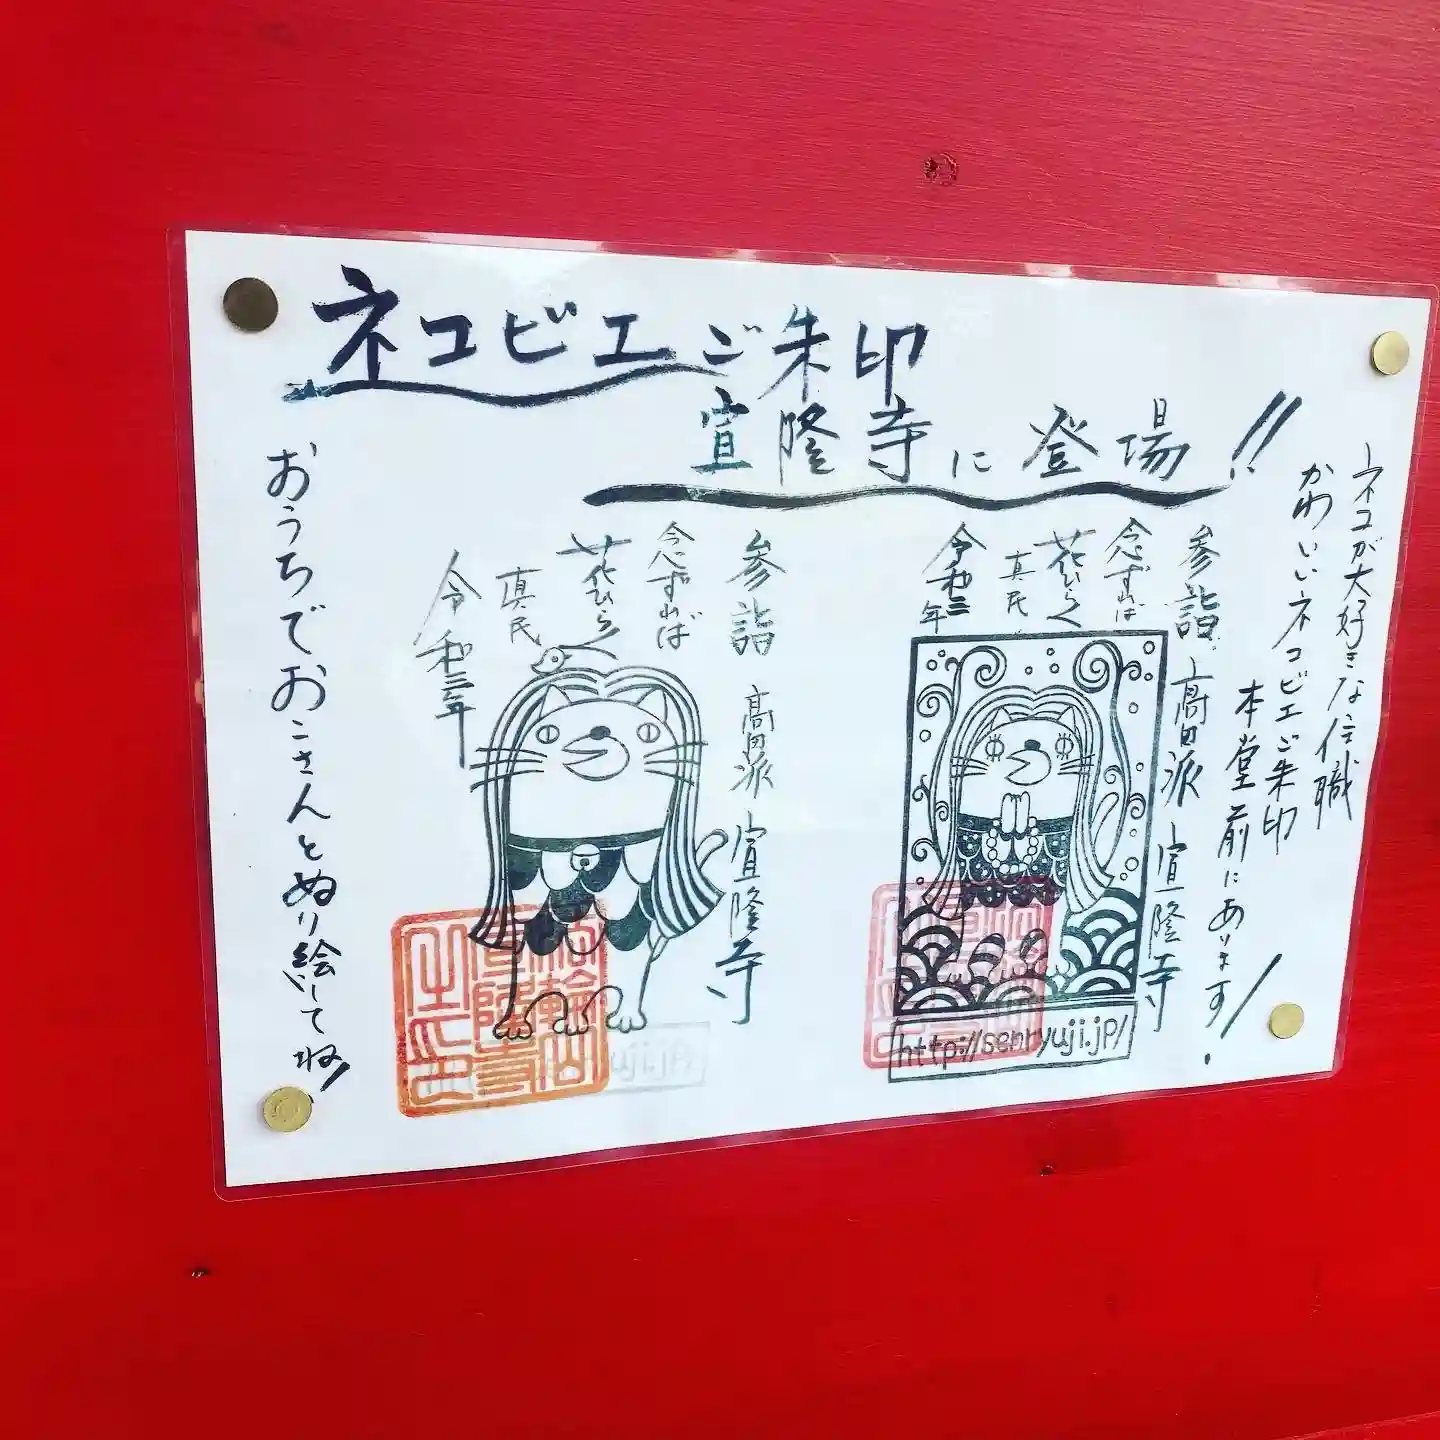 ネコビエご朱印
宣隆寺に登場!!
ネコが大好きな住職
かわいいネコビエご朱印
本堂前にあります!
参詣 高田派 宣隆寺
念ずれば
花ひらく
真民
令和三年
http://senryuji.jp/
参詣 高田派 宣隆寺
念ずれば
花ひらく
真民
令和三年
おうちでおこさんとぬり絵してね!